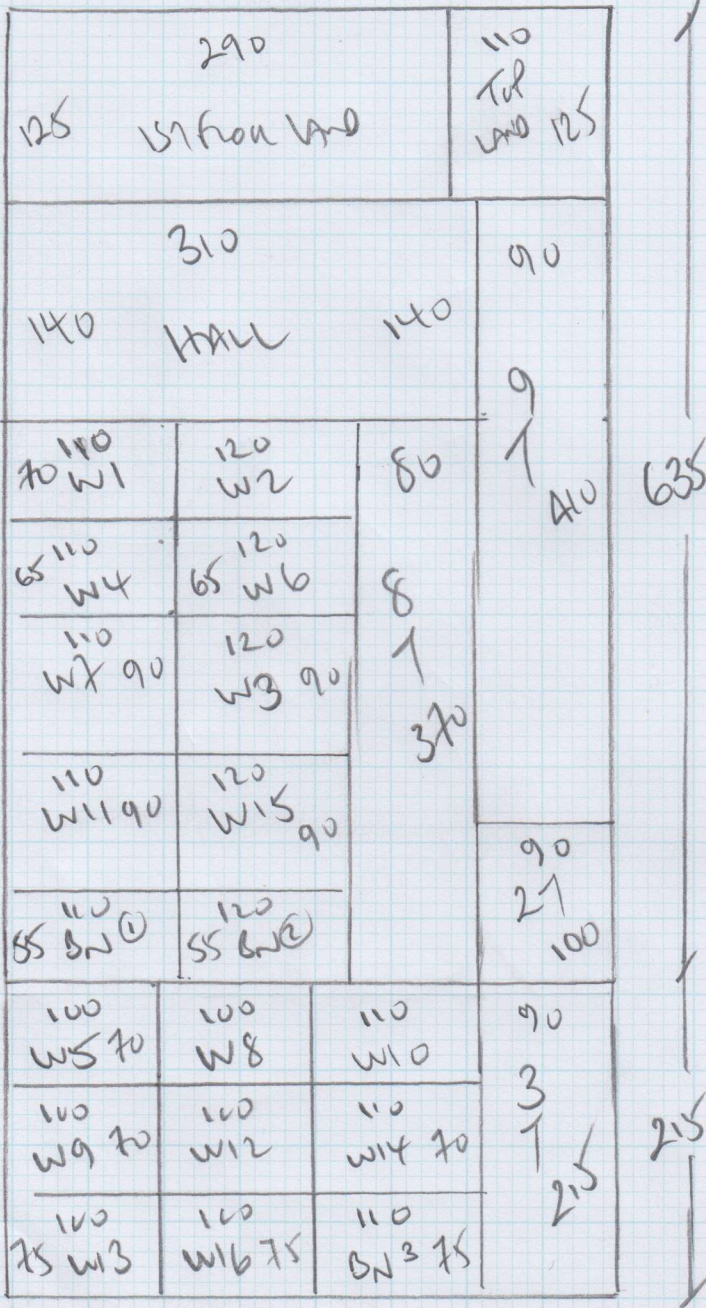 290
125 1ST FLOOR LAND
110
TOP
LAND 125
310
140 HALL 140
90
9
1
410
635
110
70 W1
120
W2
80
8
1
370
110
65 W4
120
65 W6
110
W7 90
120
W3 90
110
W11 90
120
W15 90
90
21
100
110
55 BN ①
120
55 BN ②
100
W5 70
100
W8
110
W10
90
3
1
215
215
100
W9 70
100
W12
110
W14 70
100
75 W13
100
W16 75
110
BN 3 75